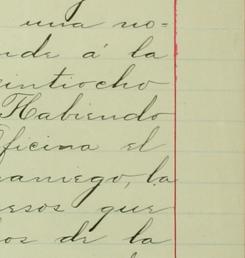 una no=
nde á la
eintiocho
Habiendo
ficina el
aniego, la
esos que
os de la